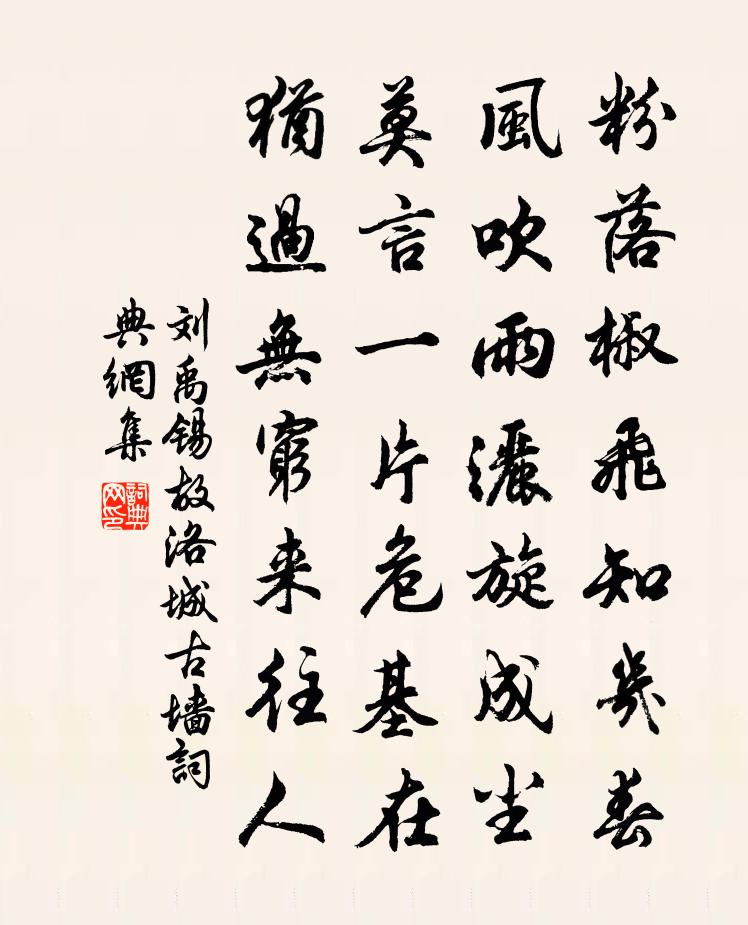 粉落椒飛知幾春
風吹雨灑旋成尘
莫言一片危基在
猶過無窮来往人
刘禹锡故洛城古墙詞
典網集
詞典网印